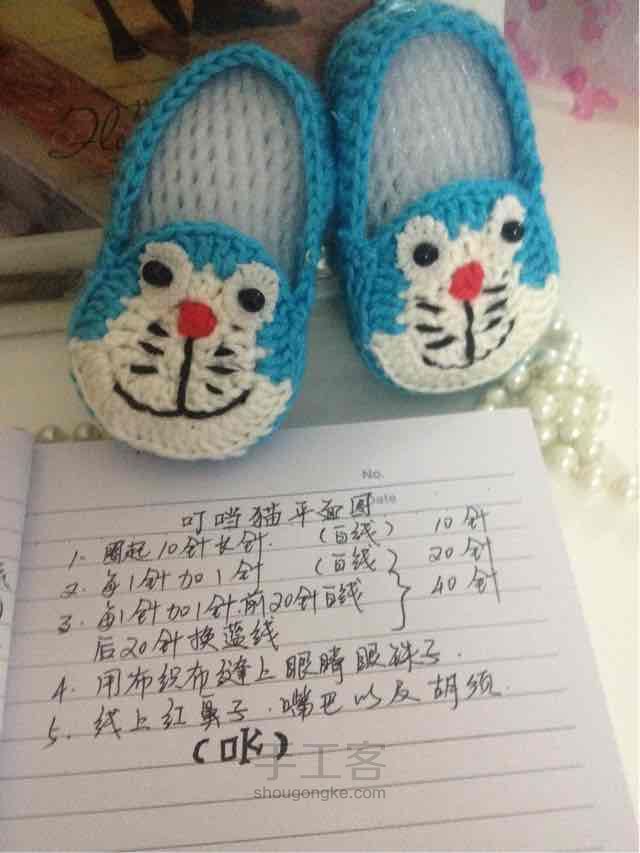 No.
Date
叮噹猫平面图
1. 圈起10针长针. (白线) 10针
2. 每1针加1针 (白线) 20针
3. 每1针加1针.前20针白线 40针
后20针换蓝线
4. 用布织布缝上眼睛眼珠子.
5. 线上红鼻子.嘴巴以及胡须.
(OK)
手工客
shougongke.com